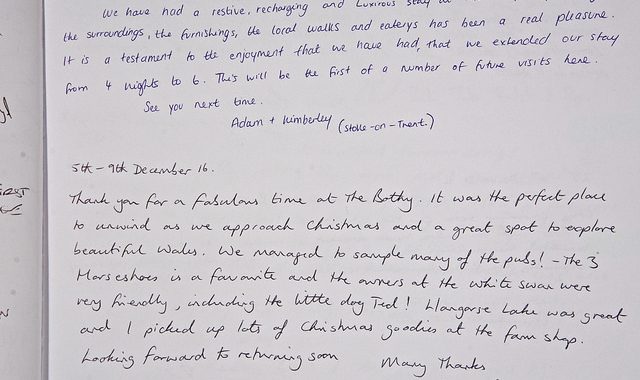 We have had a restive, recharging and Luxirous stay
the surroundings, the furnishings, the local walks and eaterys has been a real pleasure.
It is a testament to the enjoyment that we have had, that we extended our stay
from 4 nights to 6. This will be the first of a number of future visits here.
See you next time.
Adam + Kimberley (Stoke-on-Trent.)
5th - 9th December 16.
Thank you for a fabulous time at The Bothy. It was the perfect place
to unwind as we approach Christmas and a great spot to explore
beautiful Wales. We managed to sample many of the pubs! - The 3
Horseshoes is a favourite and the owners at the white swan were
very friendly, including the little dog Ted! Llangorse Lake was great
and I picked up lots of Christmas goodies at the farm shop.
Looking forward to returning soon Many Thanks